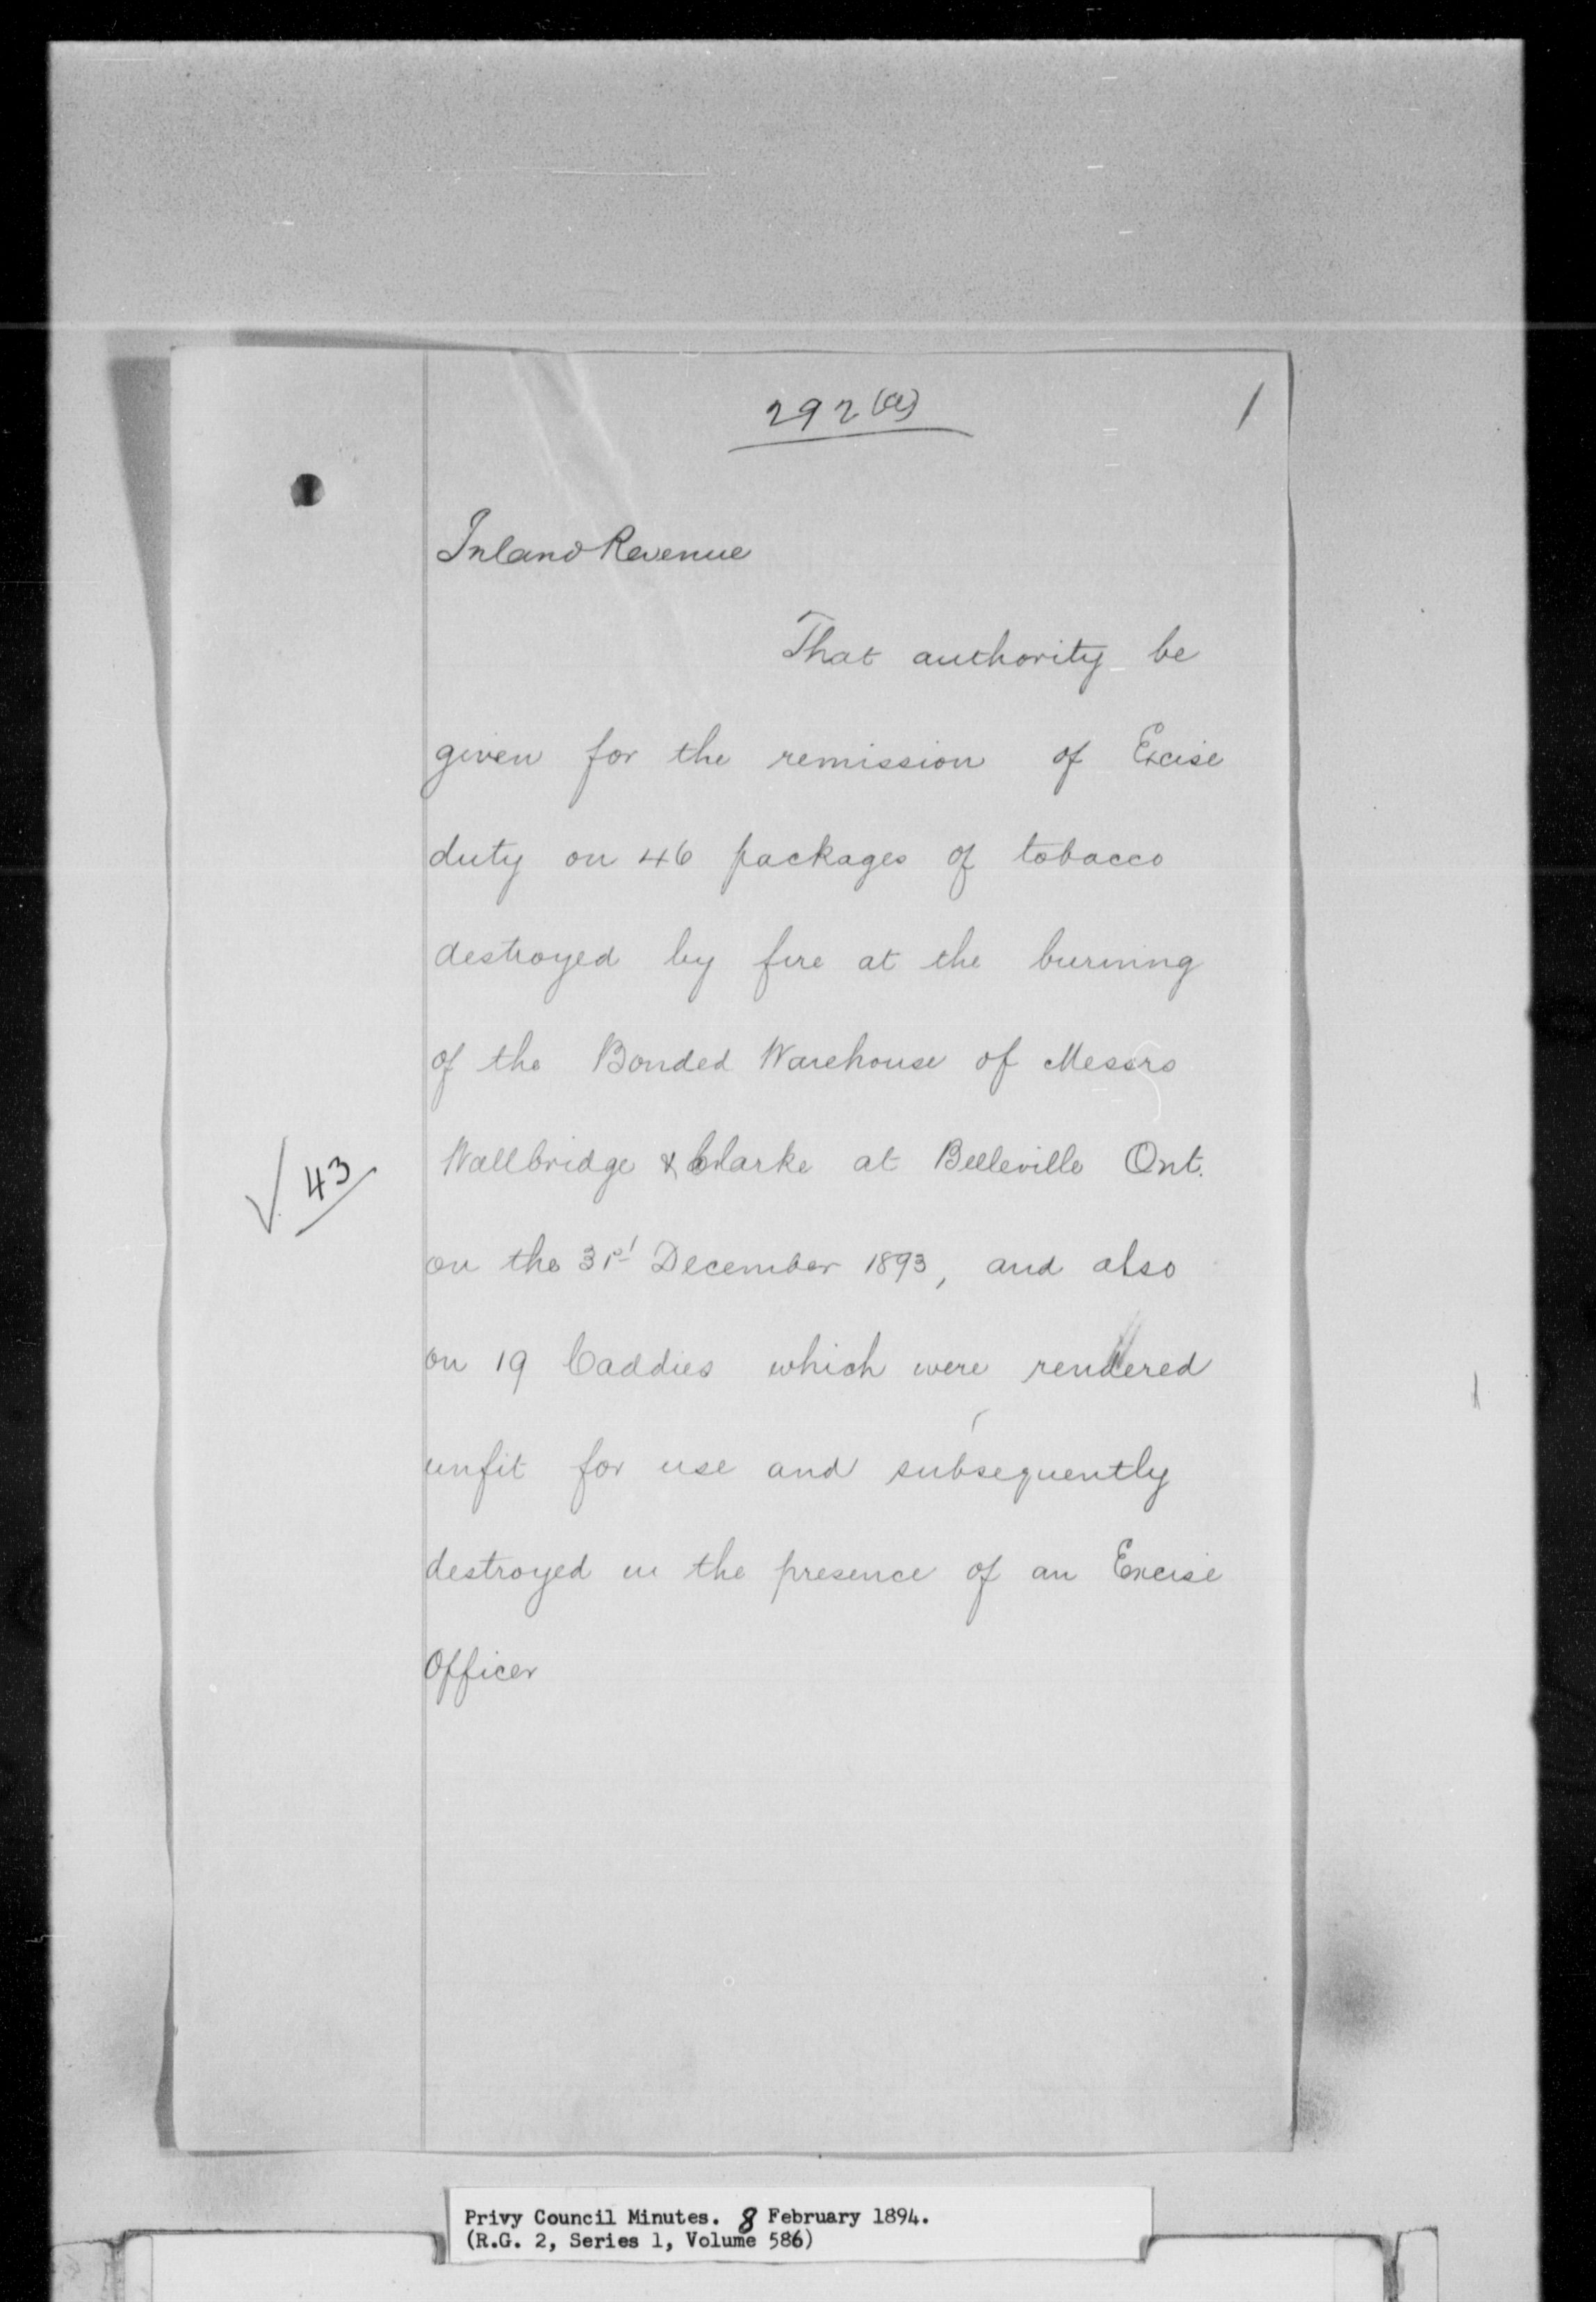 292 (a)
1
Inland Revenue
That authority be
given for the remission of Excise
duty on 46 packages of tobacco
destroyed by fire at the burning
of the Bonded Warehouse of Messrs
Wallbridge & Clarke at Belleville Ont.
43
on the 31st December 1893, and also
on 19 Caddies which were rendered
unfit for use and subsequently
destroyed in the presence of an Excise
Officer
Privy Council Minutes. 8 February 1894.
(R.G. 2, Series 1, Volume 586)